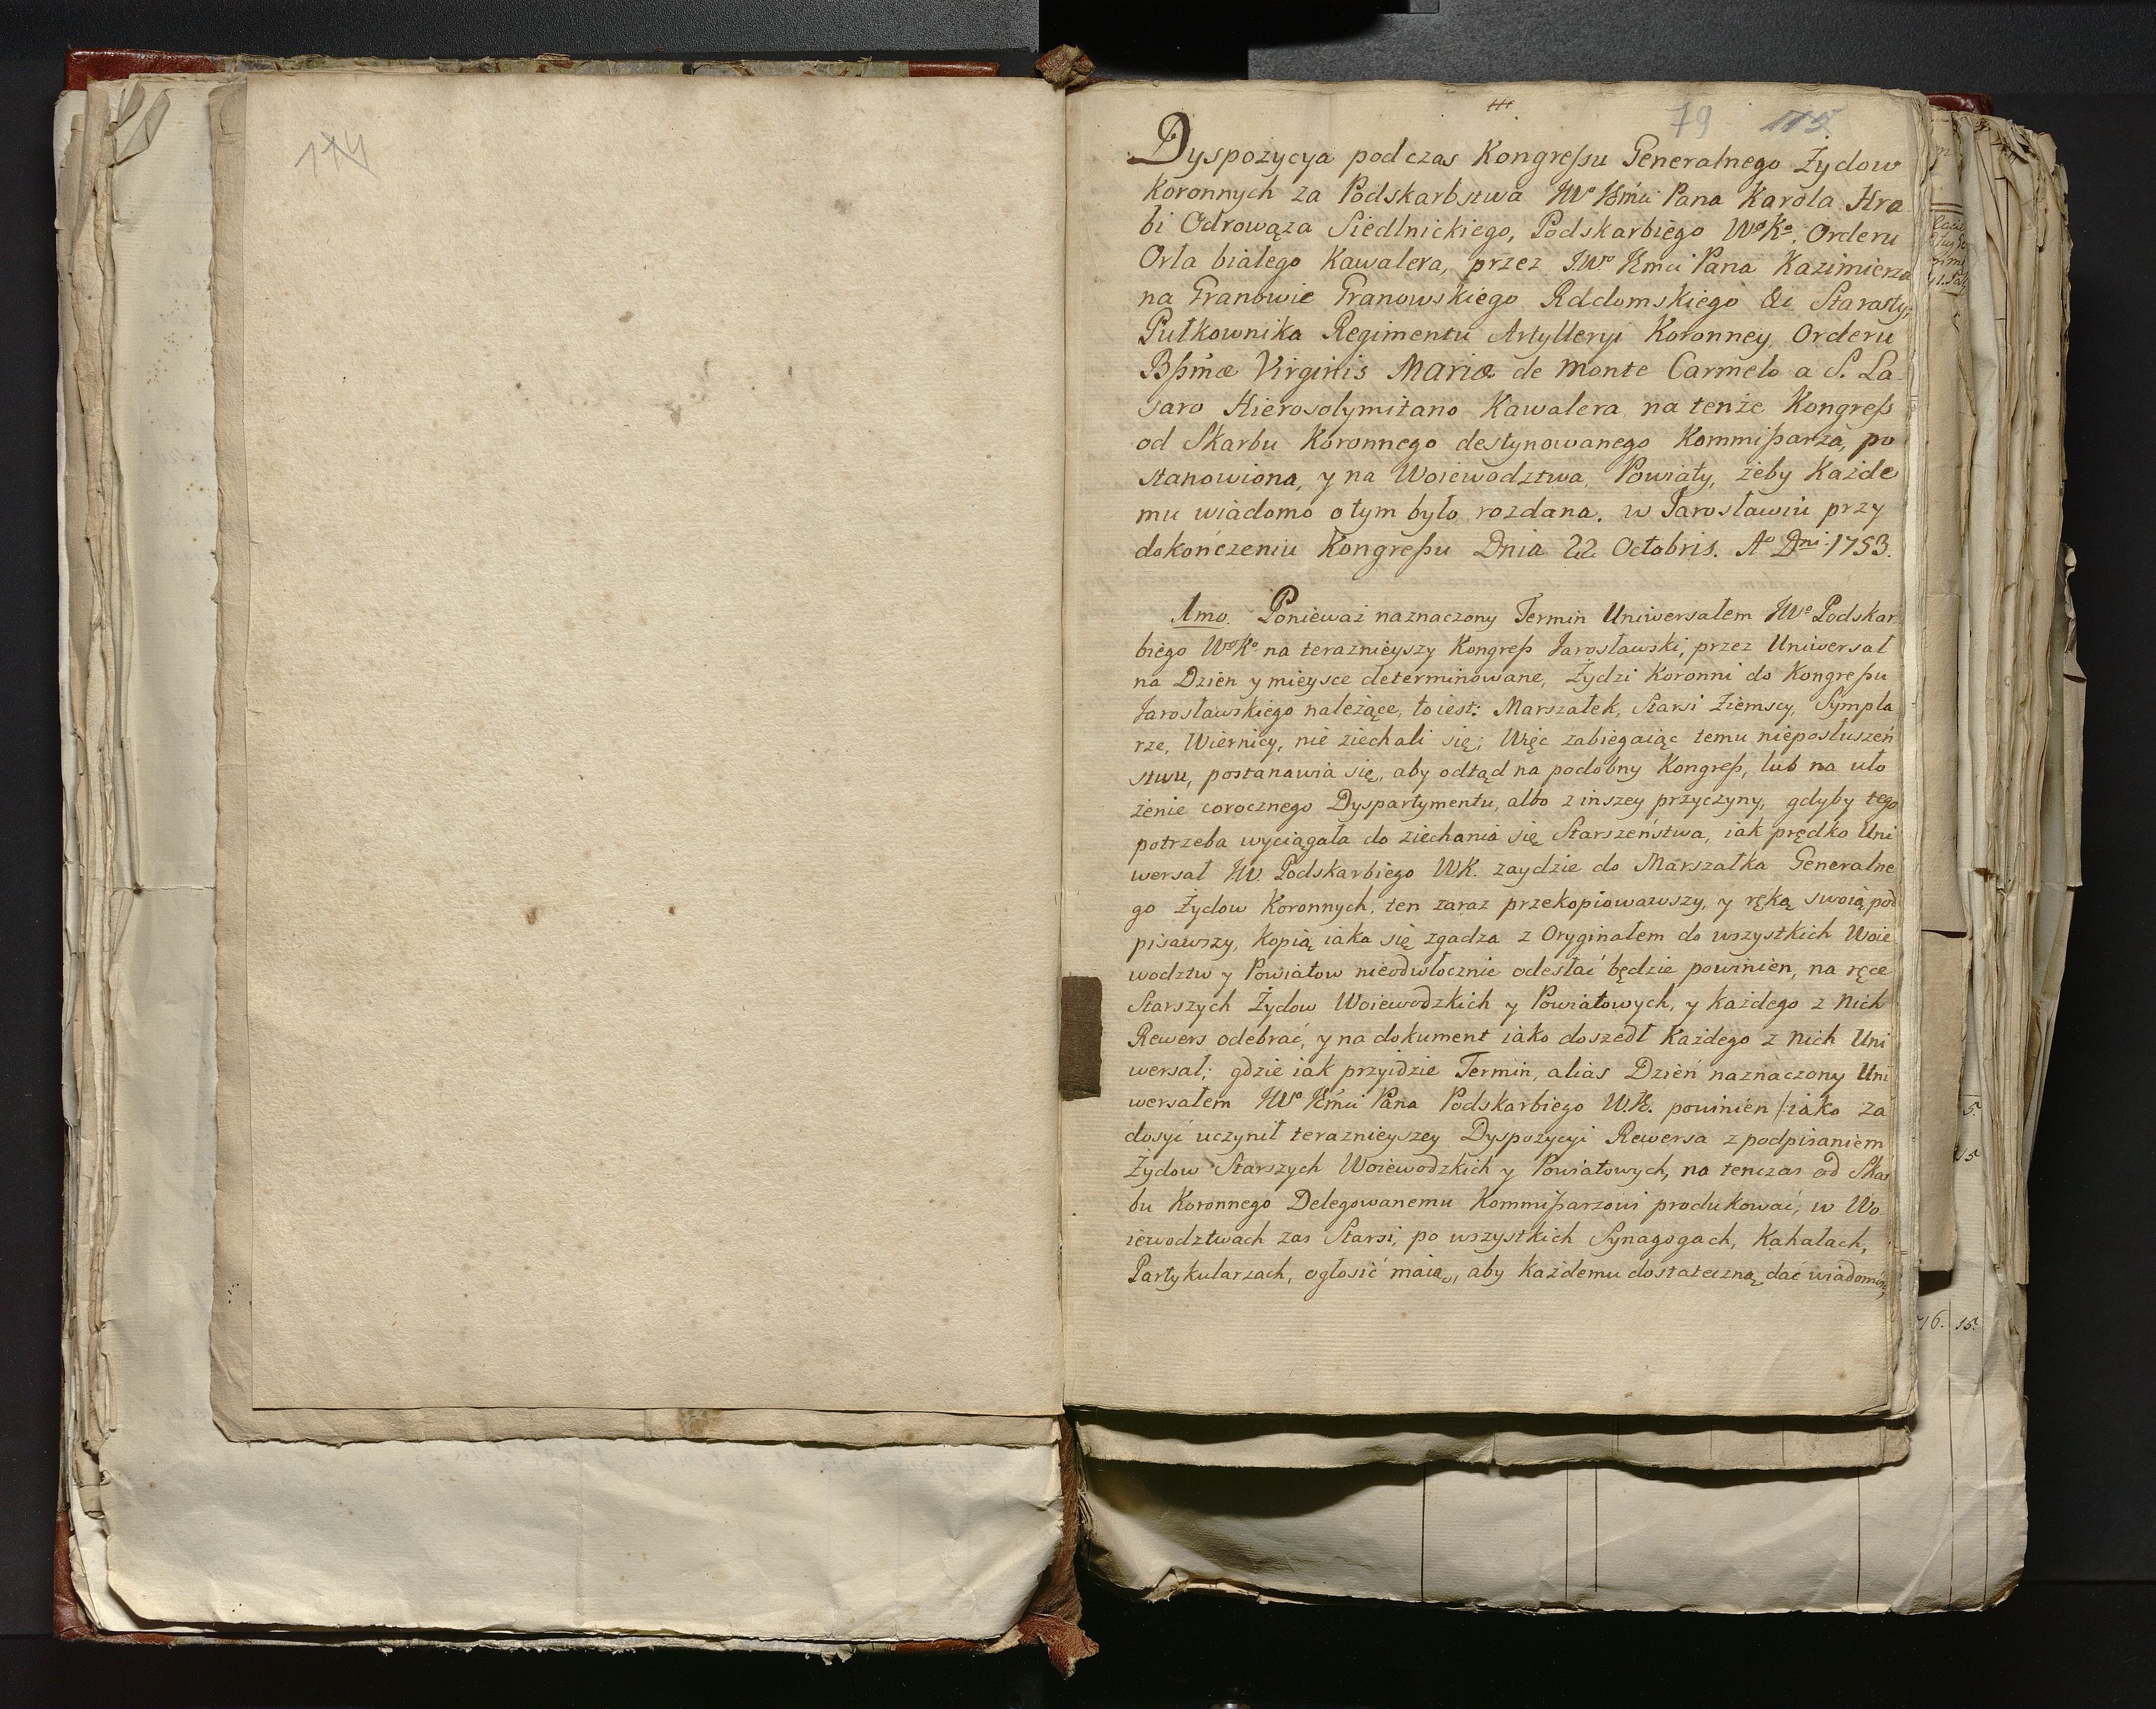 114
79 115
Dyspozycya podczas Kongreſsu Generalnego Żydow
Koronnych za Podskarbstwa JWo Jḿci Pana Karola Hra
bi Odrowąza Siedlnickiego, Podskarbiego WoKo. Orderu
Orła białego Kawalera, przez JWo Jmci Pana Kazimierza
na Granowie Granowskiego Rddomskiego &c Starosty,
Pułkownika Regimentu Artylleryi Koronney, Orderu
Bſsm̃æ Virginis Mariæ de Monte Carmelo a S. La
saro Hierosolymitano Kawalera, na tenże Kongreſs
od Skarbu Koronnego destynowanego Kommiſsarza, po
stanowiona, y na Woiewodztwa, Powiaty, żeby Każde
mu wiadomo o tym było, rozdana. w Jarosławiu przy
dokończeniu Kongreſsu Dnia 22 Octobris. Ao Dni. 1753.
1mo. Ponieważ naznaczony Termin Uniwersałem JWo Podskar
biego WoKo na teraznieyszy Kongreſs Jarosławski, przez Uniwersał
na Dzien y mieysce determinowane, Żydzi Koronni do Kongreſsu
Jarosławskiego należące, to iest: Marszałek, Starsi Ziemscy, Sympla
rze, Wiernicy, nie ziechali się; Więc zabiegaiąc temu nieposłuszeń
stwu, postanawia się, aby odtąd na podobny Kongreſs, lub na uło
żenie corocznego Dyspartymentu, albo z inszey przyczyny, gdyby tego
potrzeba wyciągała do ziechania się Starszeństwa, iak prędko Uni
wersał JW. Podskarbiego WK. zaydzie do Marszałka Generalne
go Żydow Koronnych, ten zaraz przekopiowawszy, y ręką swoią pod
pisawszy, kopią iaka się zgadza z Oryginałem do wszystkich Woie
wodztw y Powiatow nieodwłocznie odesłać będzie powinien, na ręce
Starszych Żydow Woiewodzkich y Powiatowych, y każdego z nich
Rewers odebrać, y na dokument iako doszedł Każdego z nich Uni
wersał; gdzie iak przyidzie Termin, alias Dzień naznaczony Uni
wersałem JWo Jḿci Pana Podskarbiego W.K. powinien /:iako za
dosyć uczynił teraznieyszey Dyspozycyi Rewersa z podpisaniem
Żydow Starszych Woiewodzkich y Powiatowych, na tenczas od Skar
bu Koronnego Delegowanemu Kommiſsarzowi produkować, w Wo
iewodztwach zas Starsi, po wszystkich Synagogach, Kahałach,
Partykularzach, ogłosić maią, aby każdemu dostateczną dać wiadomość,
5.
15
76. 15.